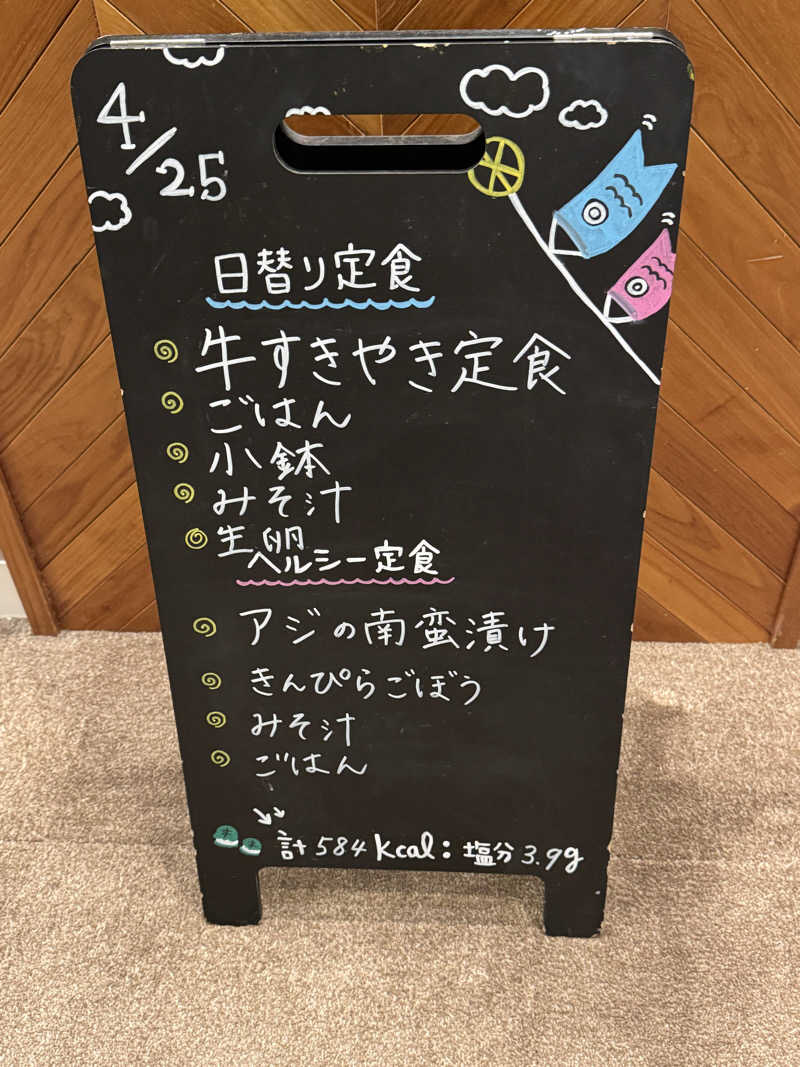 4/25
日替り定食
牛すきやき定食
ごはん
小鉢
みそ汁
生卵
ヘルシー定食
アジの南蛮漬け
きんぴらごぼう
みそ汁
ごはん
計584kcal:塩分3.9g